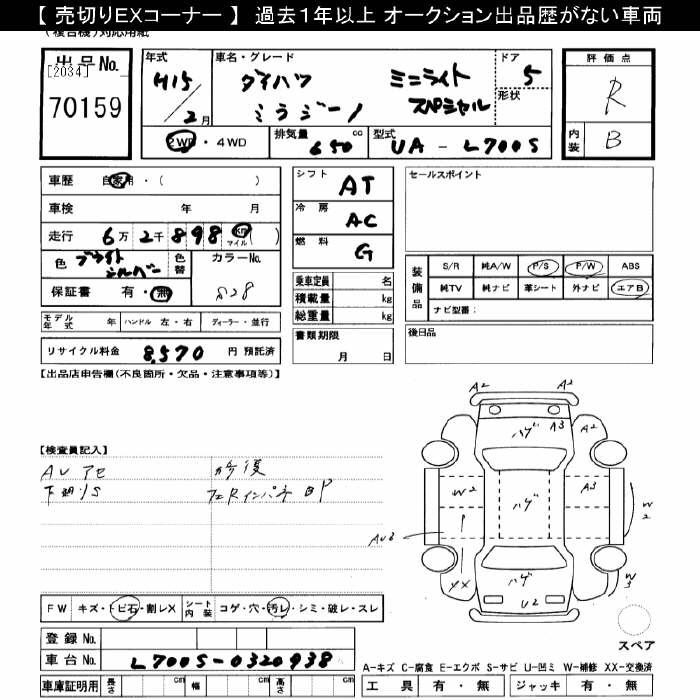 【 売切りEXコーナー 】 過去1年以上 オークション出品歴がない車両
(複合機)対応用紙
出品No.
[2034]
70159
年式
H15/2月
車名・グレード
ダイハツ ミニライト
ミラジーノ スペシャル
ドア
5
形状
2WD・4WD
排気量
650 cc
型式
UA - L700S
評価点
R
内装
B
車歴 自家用・( )
車検 年 月
走行 6万 2千 898 km マイル ( )
色 ブライトシルバー
色替
カラーNo.
S28
保証書 有・無
モデル年式 年
ハンドル 左・右
ディーラー・並行
リサイクル料金 8,570 円 預託済
シフト AT
冷房 AC
燃料 G
乗車定員 名
積載量 kg
総重量 kg
書類期限
月 日
セールスポイント
装備品
S/R 純A/W P/S P/W ABS
純TV 純ナビ 革シート 外ナビ エアB
ナビ型番:
後日品
【出品店申告欄(不良箇所・欠品・注意事項等)】
【検査員記入】
AU アセ
下廻りS
修復
フェRインパネ BP
A2
A2
A3
A2
ハゲ
W2
ハゲ
A3
W2
AU3
XX
ハゲ
U2
W3
スペア
FW キズ・トビ石・割レX
シート内装 コゲ・穴・汚レ・シミ・破レ・スレ
登録No.
車台No. L700S-0320938
車庫証明用 長さ cm 幅 cm 高さ cm
A-キズ C-腐食 E-エクボ S-サビ U-凹ミ W-補修 XX-交換済
工具 有・無 ジャッキ 有・無